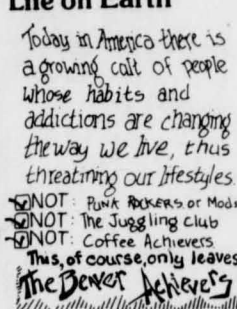 Life on Earth
Today in America there is
a growing cult of people
whose habits and
addictions are changing
the way we live, thus
threatining our lifestyles.
NOT: PUNK ROCKERS or Mods
NOT: The Juggling Club
NOT: Coffee Achievers
This, of course, only leaves
The Beaver Achievers